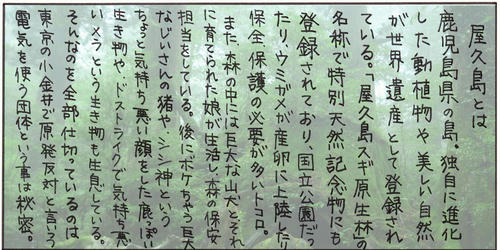 屋久島とは
鹿児島県の島。独自に進化
した動植物や美しい自然
が世界遺産として登録され
ている。「屋久島スギ原生林の
名称で特別天然記念物にも
登録されており、国立公園だ
たり、ウミガメが産卵に上陸したり
保全、保護の必要が多いトコロ。
また森の中には巨大な山犬とそれ
に育てられた娘が生活し森の保安
担当をしている。後にボケちゃう巨大
なじいさんの猪や、シシ神という
ちょっと気持ち悪い顔をした鹿っぽい
生き物や、ドストライクで気持ち悪
いメラという生き物も生息している。
そんなのを全部仕切っているのは
東京の小金井で原発反対と言いつつ
電気を使う団体という事は秘密。